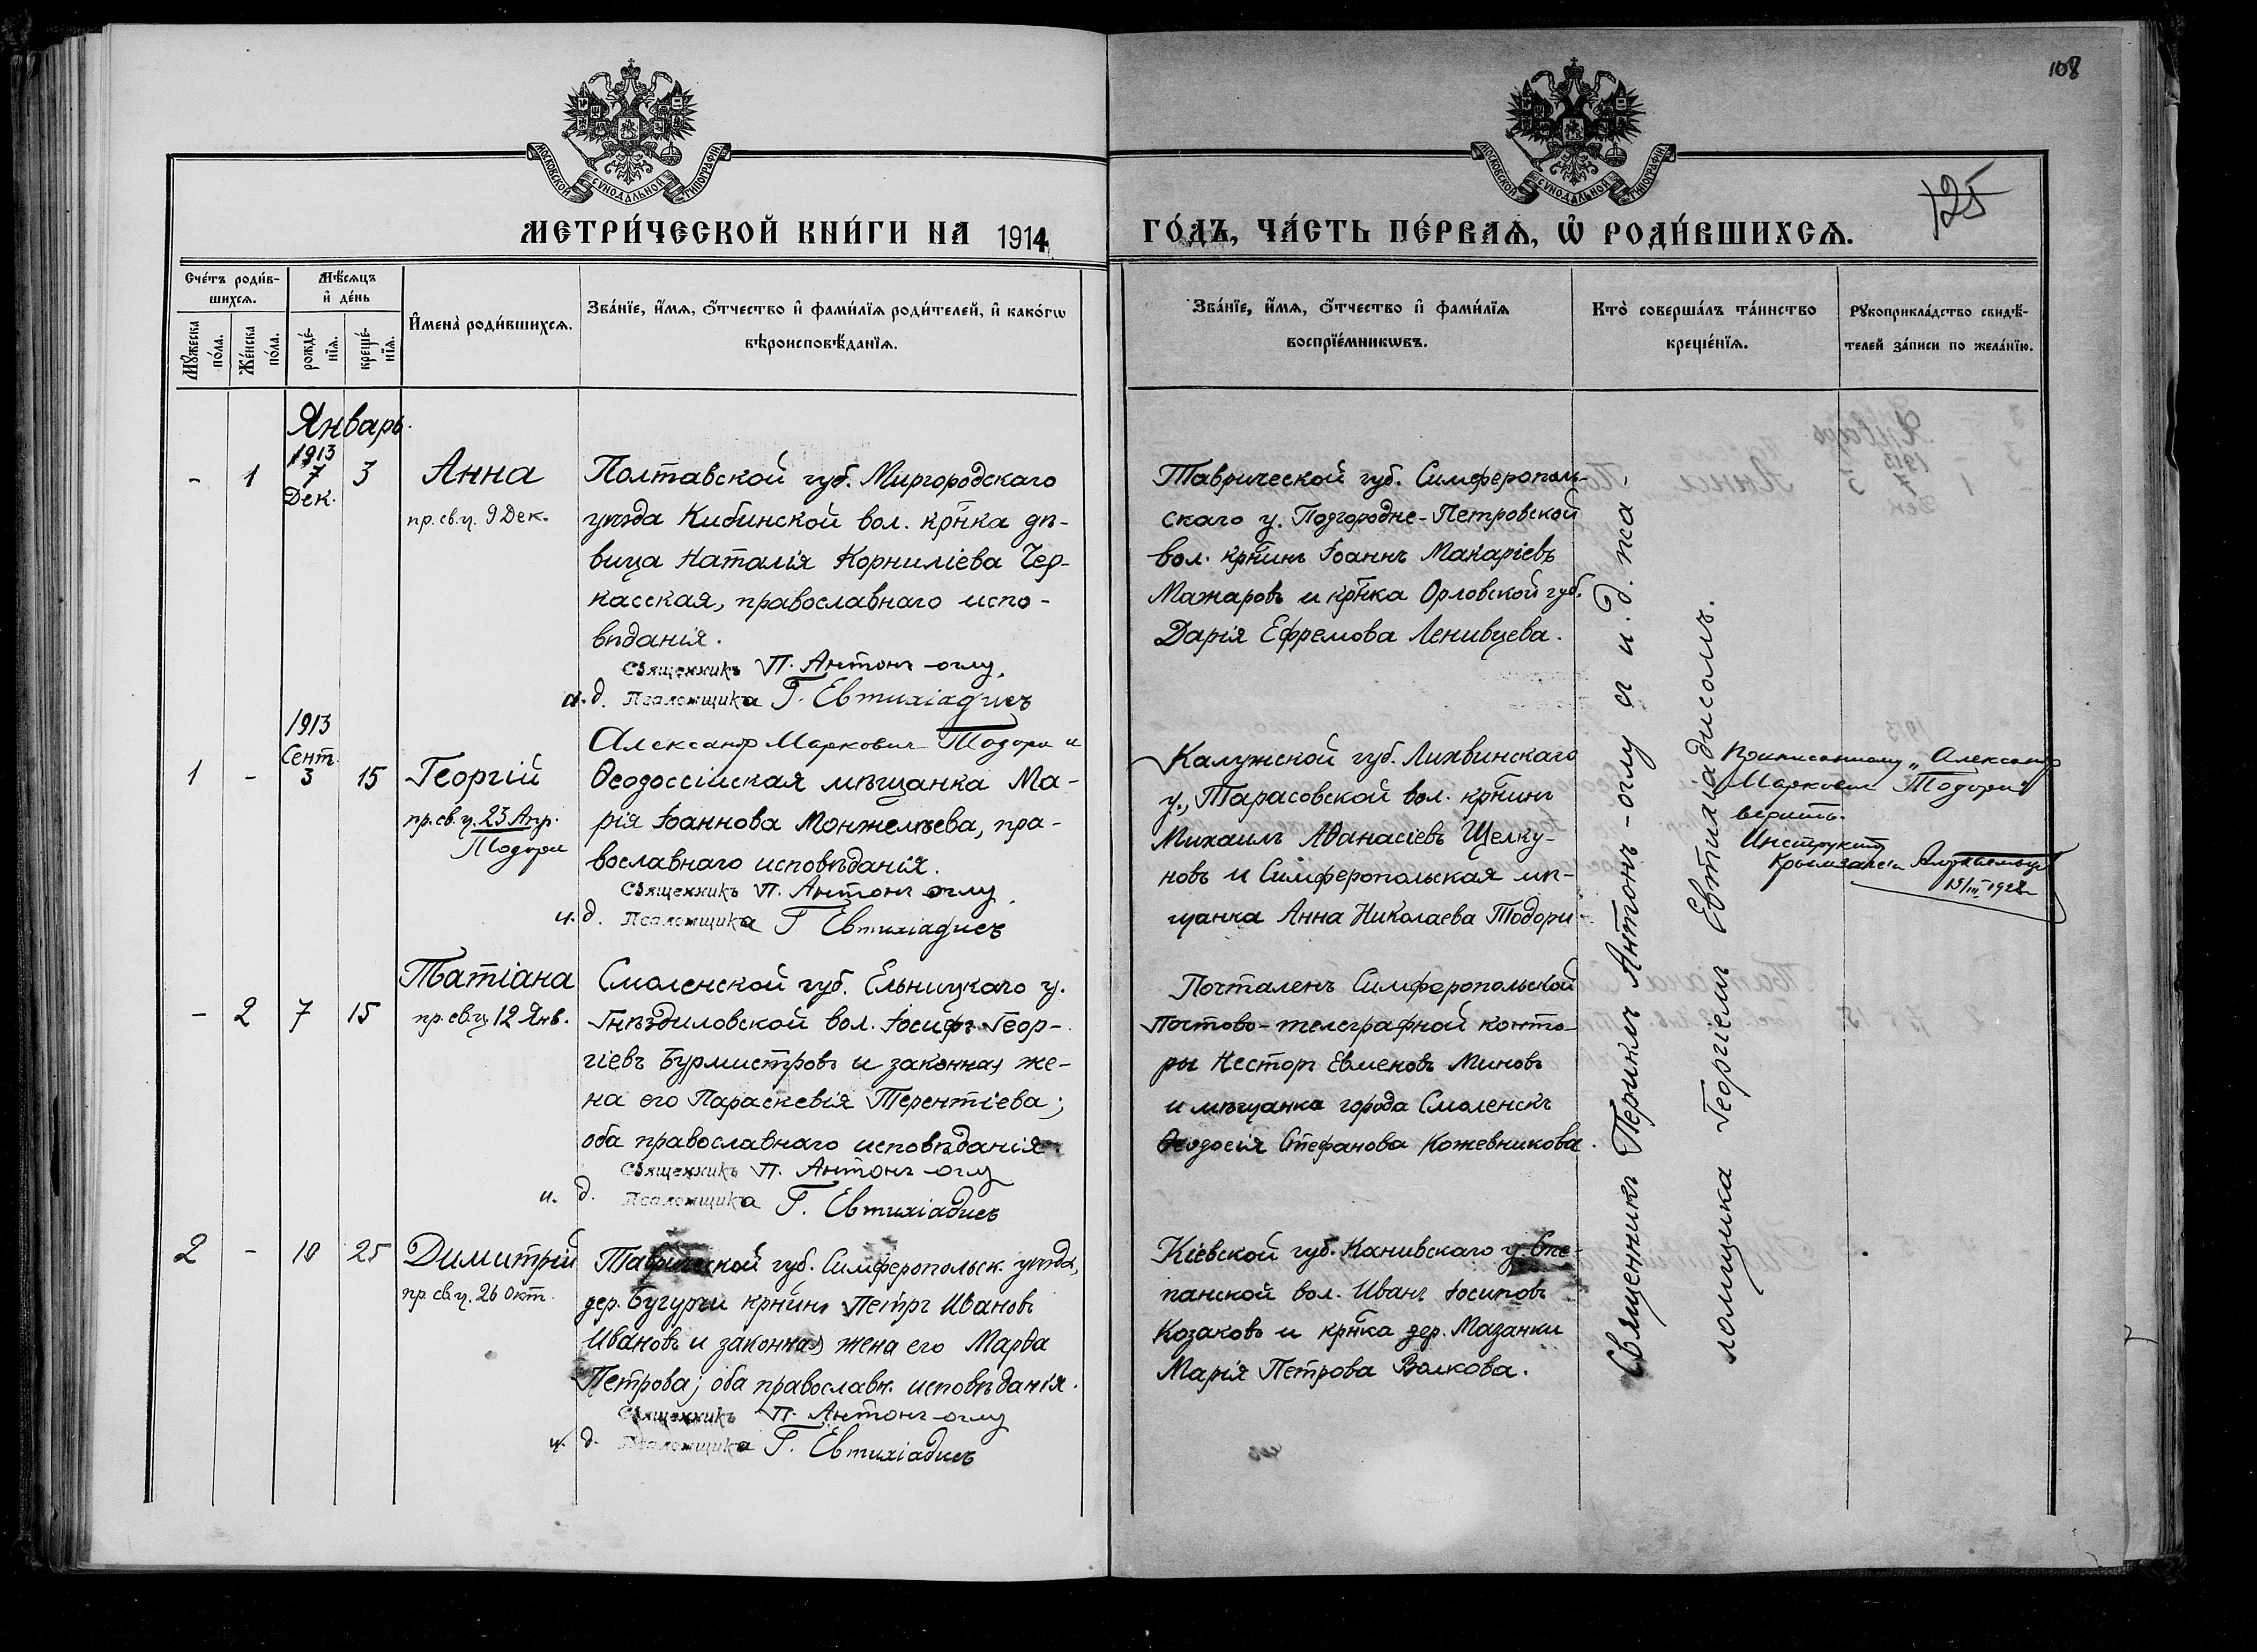 108
125
МОСКОВСКОЙ СѴНОДАЛЬНОЙ ТИПОГРАФИИ
МОСКОВСКОЙ СѴНОДАЛЬНОЙ ТИПОГРАФИИ
МЕТРИ́ЧЕСКОЙ КНИ́ГИ НА 1914
ГО́ДЪ, ЧА́СТЬ ПЕ́РВАѦ, Ѡ҆ РОДИ́ВШИХСѦ.
Сче́тъ роди́в-
шихсѧ.
Мꙋ́жеска
по́ла.
Же́нска
по́ла.
Мѣ́сѧцъ
и҆ де́нь
рожде́-
нїѧ.
креще́-
нїѧ.
И҆мена̀ роди́вшихсѧ.
Зва́нїе, и҆́мѧ, ѻ҆́тчество и҆ фами́лїѧ роди́телей, и҆ како́гѡ
вѣроисповѣ́данїѧ.
Зва́нїе, и҆́мѧ, ѻ҆́тчество и҆ фами́лїѧ
воспрїе́мникѡвъ.
Кто̀ соверша́лъ та́инство
креще́нїѧ.
Рꙋкоприкла́дство свидѣ́-
телей за́писи по жела́нїю.
Январь.
1913
- 1 7 3
Дек.
Анна
пр. св. ц. 9 Дек.
Полтавской губ. Миргородскаго
уѣзда Кибинской вол. крн̃ка дѣ-
вица Наталія Корниліева Чер-
касская, православнаго испо-
вѣданія.
Священникъ П. Антонъ-оглу.
и. д. Псаломщика Г. Евтихіадисъ
Таврической губ. Симферополь-
скаго у. Подгородне-Петровской
вол. крн̃инъ Іоаннъ Макаріевъ
Мажаровъ и крн̃ка Орловской губ.
Дарія Ефремова Ленивцева.
1913
Сент.
1 - 3 15
Георгій
пр. св. ц. 23 Апр.
Тодори
Александр Маркович Тодори и
Ѳеодоссійская мѣщанка Ма-
рія Іоаннова Монжелѣева, пра-
вославнаго исповѣданія.
Священникъ П. Антонъ оглу.
и. д. Псаломщика Г Евтихіадисъ
Калужской губ. Лихвинскаго
у., Тарасовской вол. крн̃инъ
Михаилъ Аѳанасіевъ Щелку-
новъ и Симферопольская мѣ-
щанка Анна Николаева Тодори
Приписанному „Александр
Маркович Тодори"
верить.
Инструктор
15/III 1928
- 2 7 15
Татіана
пр. св. ц. 12 Янв.
Смоленской губ. Ельницкаго у.
Гнѣздиловской вол. Іосифъ Геор-
гіевъ Бурмистровъ и законная же-
на его Параскевія Терентіева;
оба православнаго исповѣданія
Священникъ П. Антонъ-оглу
и. д. Псаломщика Г. Евтихіадисъ
Почталенъ Симферопольской
почтово-телеграфной конто-
ры Несторъ Евменовъ Миновъ
и мѣщанка города Смоленскъ
Ѳеодосія Стефанова Кожевникова.
2 - 10 25
Димитрій
пр. св. ц. 26 Окт.
Таврической губ. Симферопольск. уѣзда,
дер. Бугурчи крн̃инъ Петръ Ивановъ
Ивановъ и законная жена его Марѳа
Петрова; оба православн. исповѣданія.
Священникъ П. Антонъ-оглу
и. д. Псаломщика Г. Евтихіадисъ
Кіевской губ. Канивскаго у. Сте-
панской вол. Иванъ Іосиповъ
Козаковъ и крн̃ка дер. Мазанки
Марія Петрова Волкова.
Священникъ Периклъ Антонъ-оглу и и. д. пса-
ломщика Георгіемъ Евтихіадисомъ.